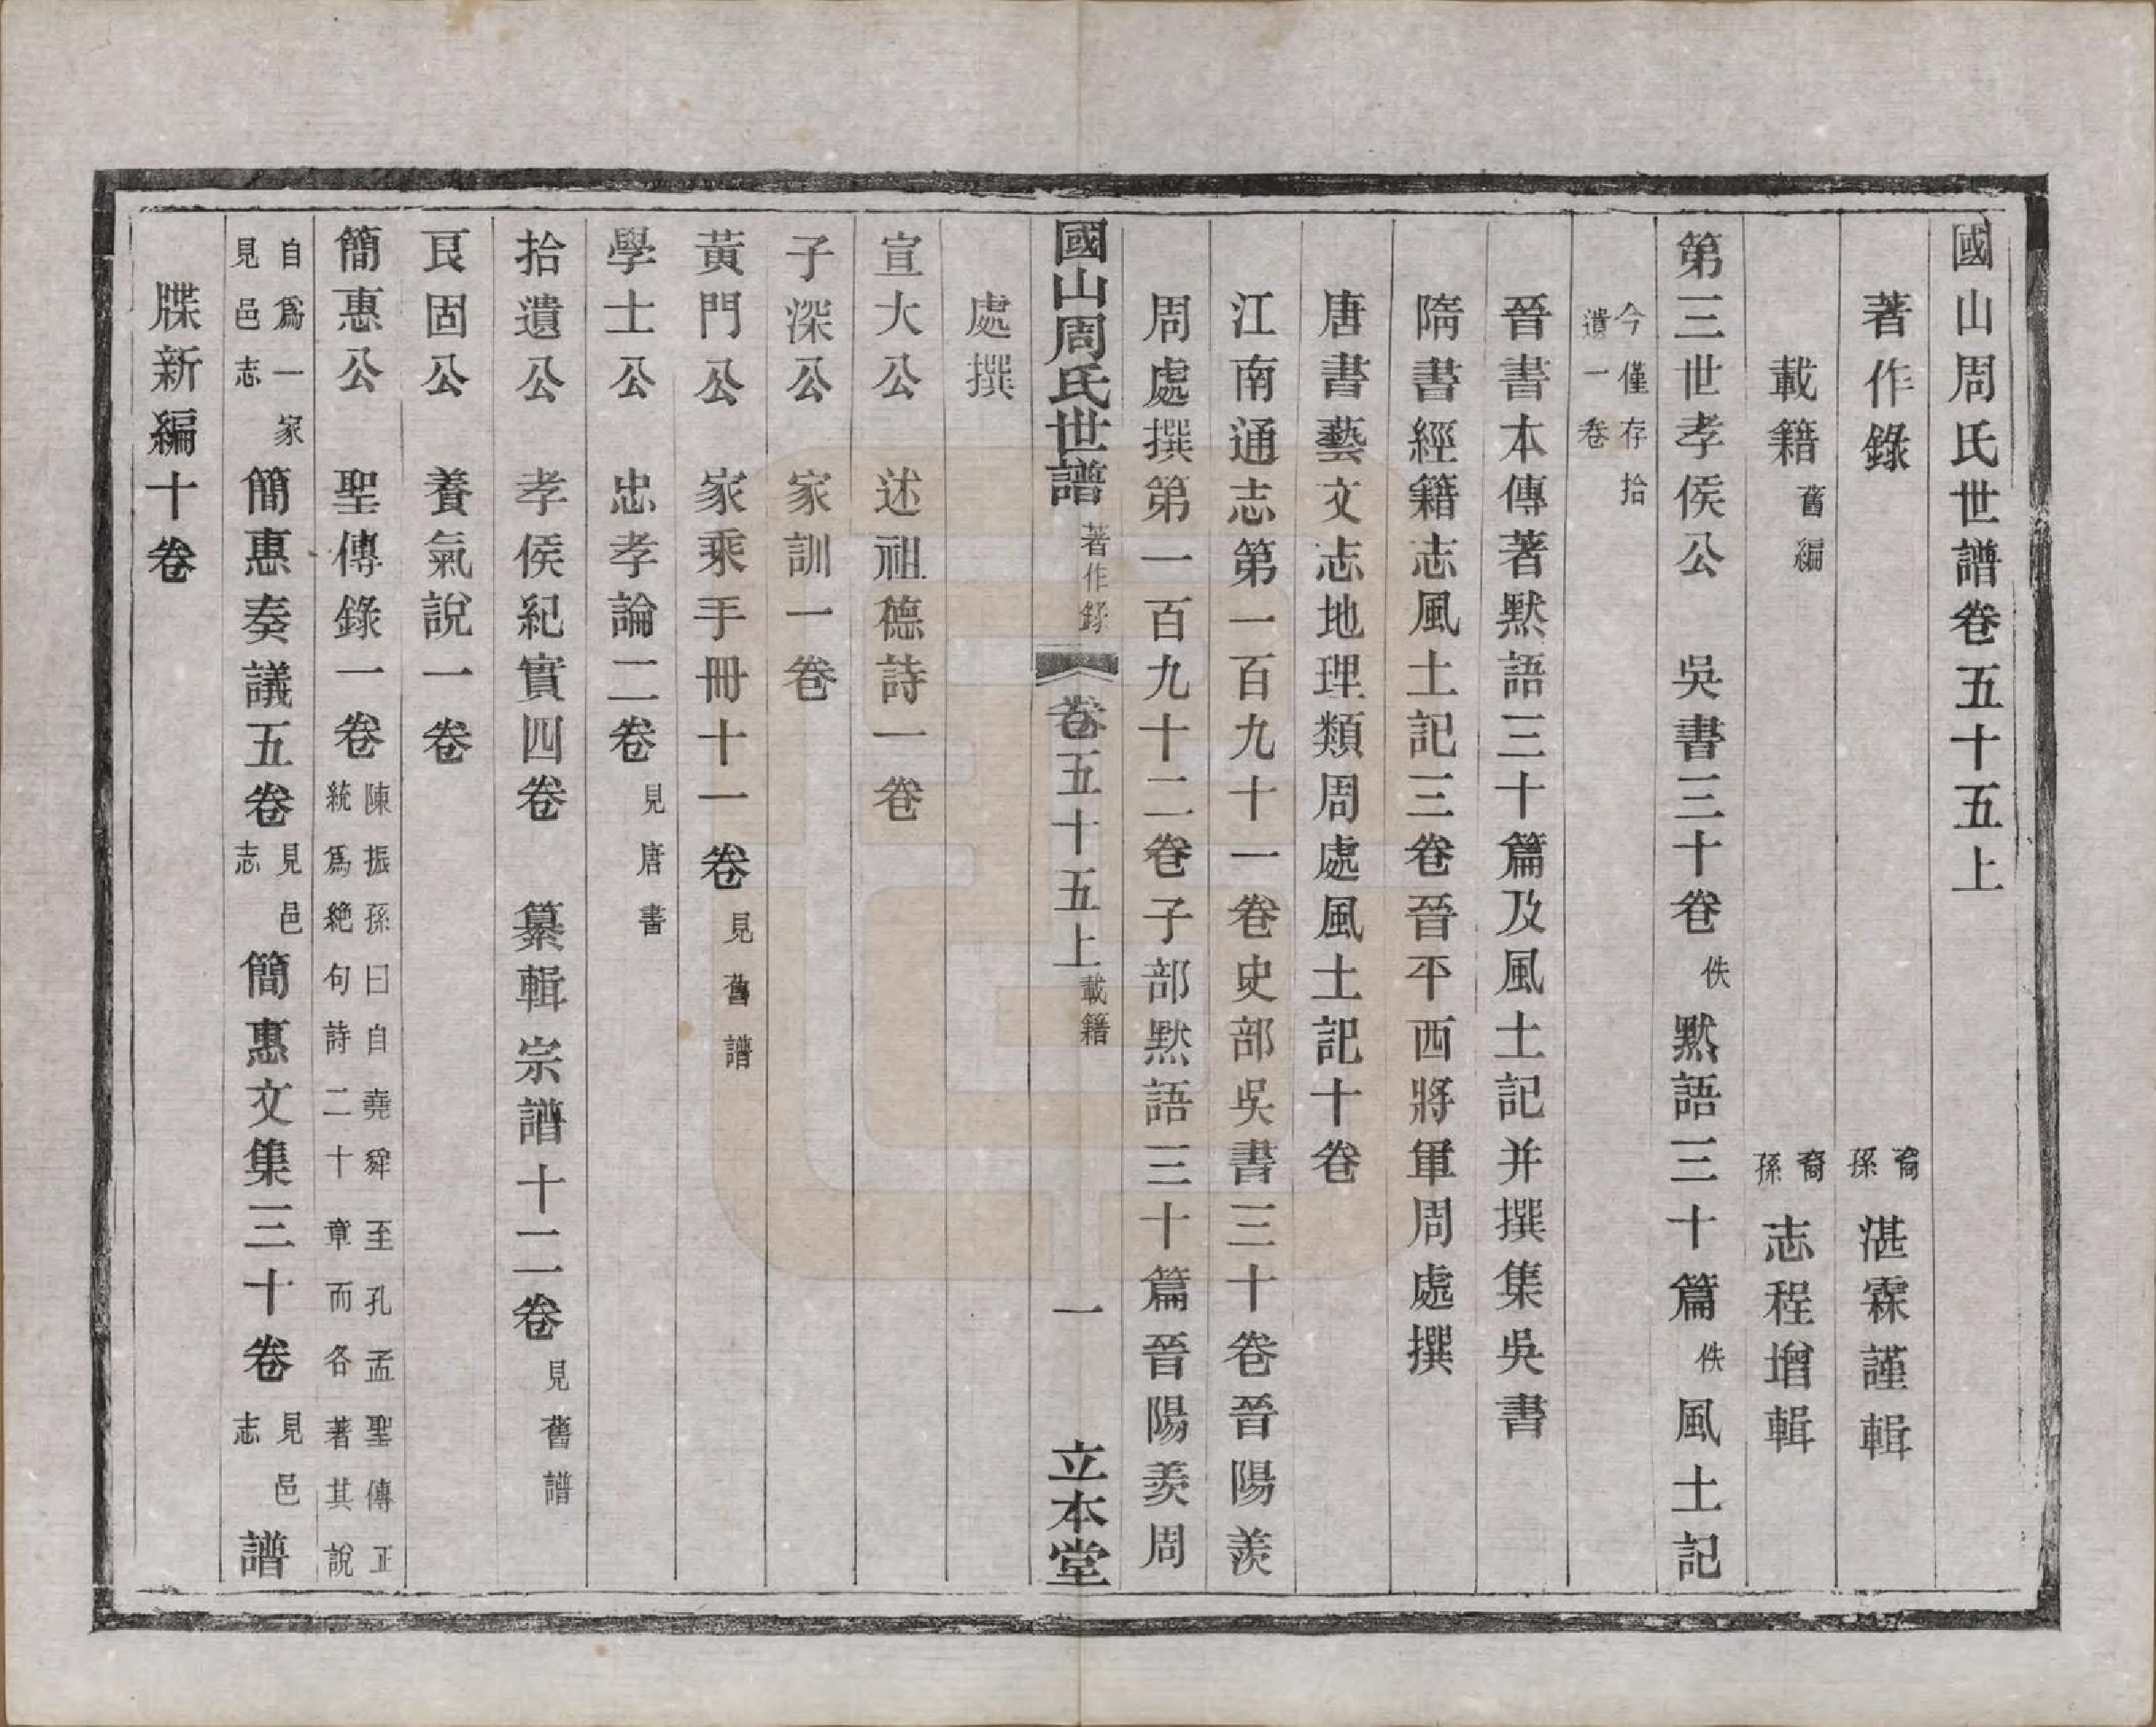 國山周氏世譜卷五十五上
著作錄 裔孫湛霖謹輯
載籍舊編 裔孫志程增輯
第三世孝侯公 吳書三十卷佚 默語三十篇佚 風土記
今僅存拾
遺一卷
晉書本傳著默語三十篇及風土記并撰集吳書
隋書經籍志風土記三卷晉平西將軍周處撰
唐書藝文志地理類周處風土記十卷
江南通志第一百九十一卷史部吳書三十卷晉陽羨
周處撰第一百九十二卷子部默語三十篇晉陽羨周
國山周氏世譜 著作錄 卷五十五上 載籍 一 立本堂
處撰
宣大公 述祖德詩一卷
子深公 家訓一卷
黃門公 家乘手冊十一卷見舊譜
學士公 忠孝論二卷見唐書
拾遺公 孝侯紀實四卷 纂輯宗譜十二卷見舊譜
艮固公 養氣說一卷
簡惠公 聖傳錄一卷陳振孫曰自堯舜至孔孟聖傳正
統爲絶句詩二十章而各著其說
自爲一家
見邑志
簡惠奏議五卷見邑志 簡惠文集三十卷見邑志 譜
牒新編十卷